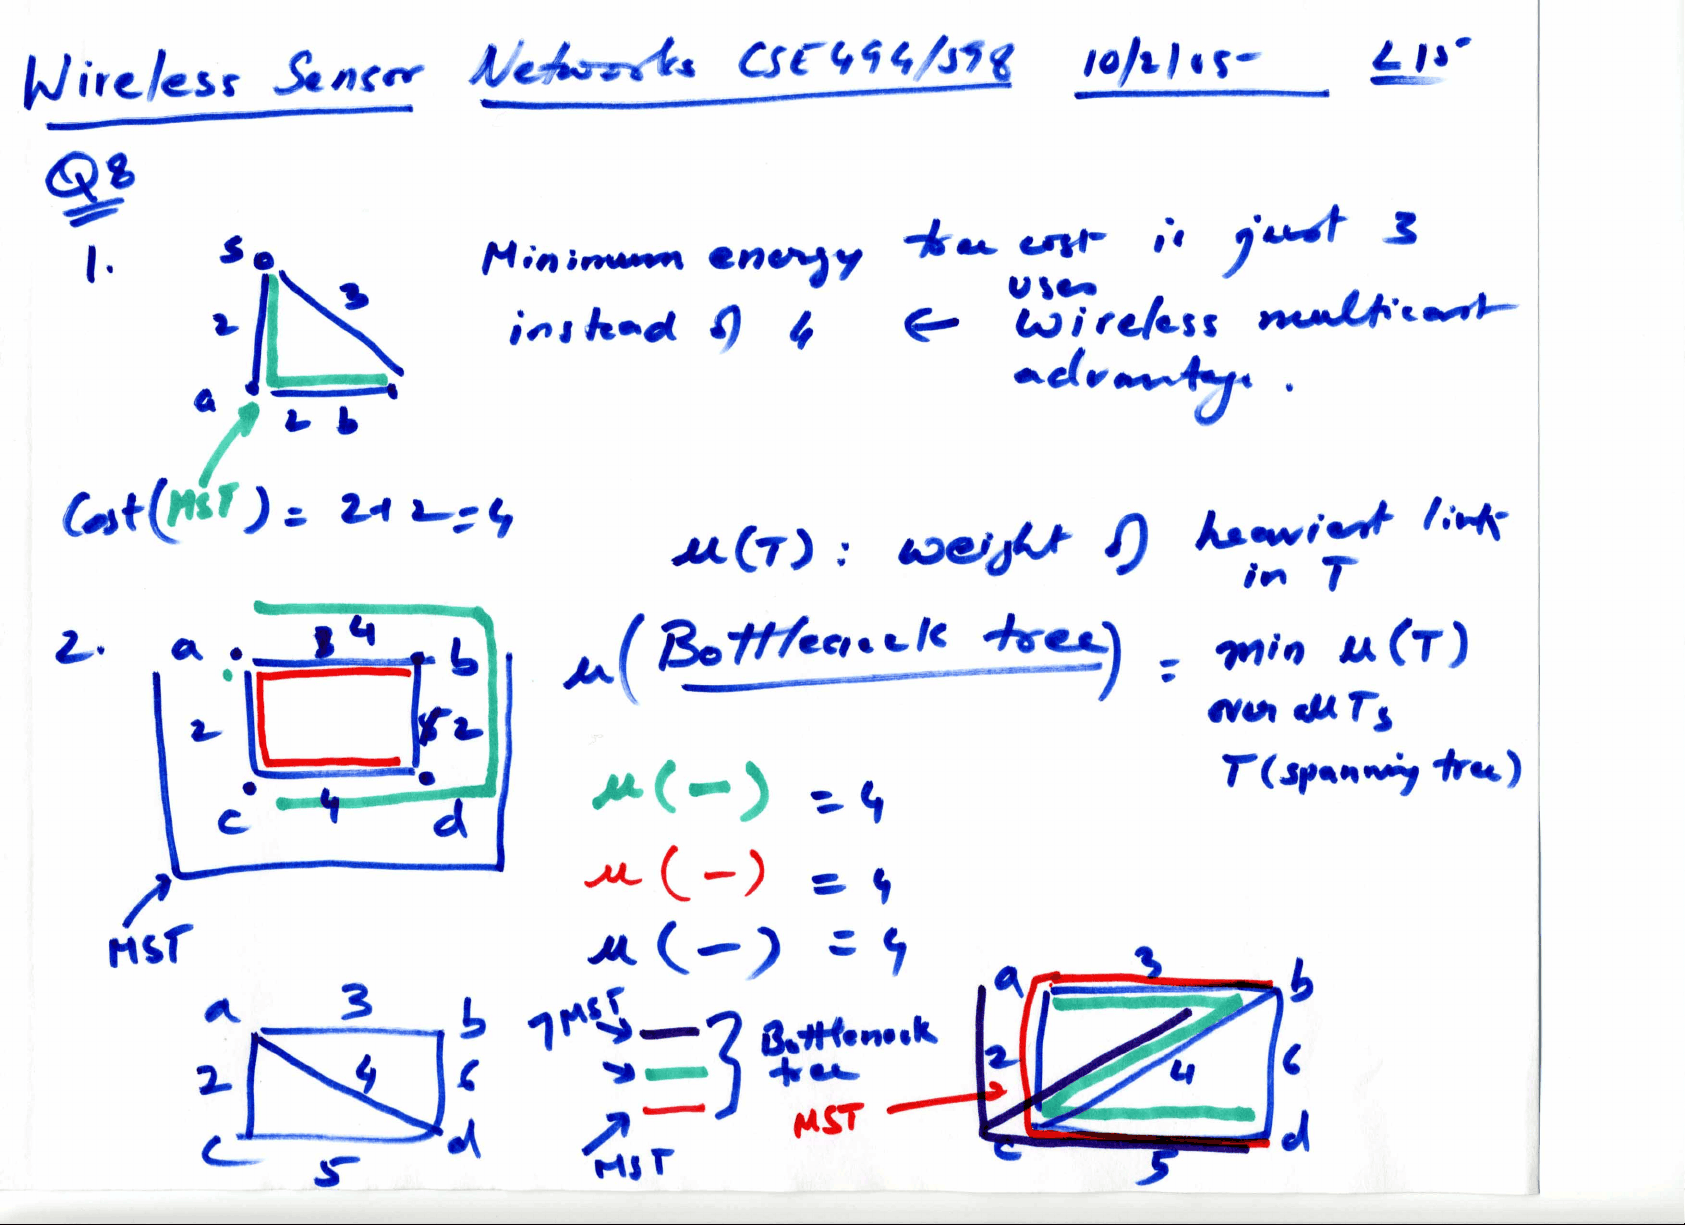 Wireless Sensor Networks CSE494/598 10/2/15 L15
Q8
1.
s
3
2
a
2 b
Minimum energy tree cost is just 3
instead of 4 ← uses
Wireless multicast
advantage.
Cost(MST) = 2+2=4
μ(T): weight of heaviest link
in T
2.
a 4 b
2 2
c 4 d
MST
μ(Bottleneck tree) = min μ(T)
over all Ts
T(spanning tree)
μ(—) = 4
μ(—) = 4
μ(—) = 4
a 3 b
2 4 6
c 5 d
MST
Bottleneck
tree
MST
MST
a 3 b
2 4 6
c 5 d